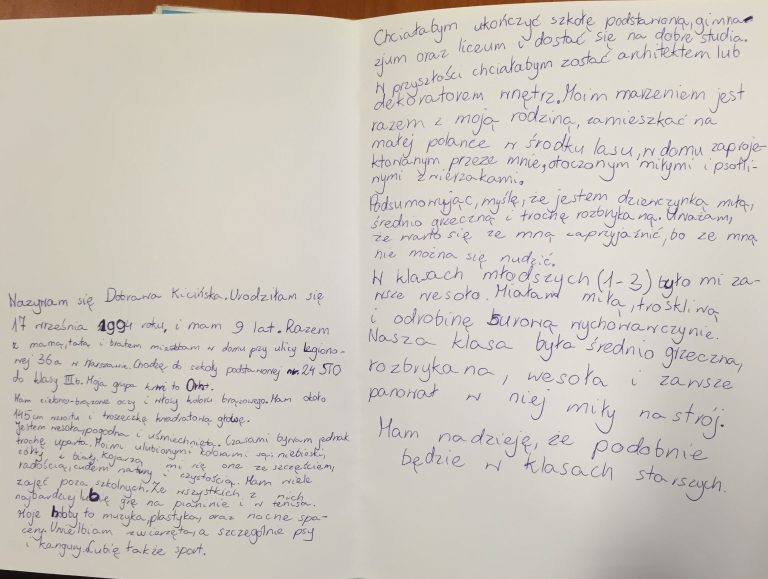 Nazywam się Dobrawa Kicińska. Urodziłam się
17 września 1994 roku, i mam 9 lat. Razem
z mamą, tatą i bratem mieszkam w domu przy ulicy Legiono-
wej 36a w Warszawie. Chodzę do szkoły podstawowej nr. 24 STO
do klasy III b. Moja grupa krwi to 0rh+.
Mam ciemno-brązowe oczy i włosy koloru brązowego. Mam około
145 cm wzrostu i troszeczkę kwadratową głowę.
Jestem wesoła, pogodna i uśmiechnięta. Czasami bywam jednak
trochę uparta. Moimi ulubionymi kolorami są: niebieski,
żółty, i biały. Kojarzą mi się one ze szczęściem,
radością, cudem natury i czystością. Mam wiele
zajęć poza szkolnych. Ze wszystkich z nich
najbardziej lubię grę na pianinie i w tenisa.
Moje hobby to muzyka, plastyka, oraz nocne spa-
cery. Uwielbiam zwierzęta, a szczególnie psy
i kangury. Lubię także sport.
Chciałabym ukończyć szkołę podstawową, gimna-
zjum oraz liceum i dostać się na dobre studia.
W przyszłości chciałabym zostać architektem lub
dekoratorem wnętrz. Moim marzeniem jest
razem z moją rodziną, zamieszkać na
małej polance w środku lasu, w domu zaproje-
ktowanym przeze mnie, otoczonym miłymi i psotli-
nymi zwierzakami.
Podsumowując, myślę, że jestem dziewczynką miłą,
średnio grzeczną i trochę rozbrykaną. Uważam,
że warto się ze mną zaprzyjaźnić, bo ze mną
nie można się nudzić.
W klasach młodszych (1-3) było mi za-
wsze wesoło. Miałam miłą, troskliwą
i odrobinę surową wychowawczynię.
Nasza klasa była średnio grzeczna,
rozbrykana, wesoła i zawsze
panował w niej miły nastrój.
Mam nadzieję, że podobnie
będzie w klasach starszych.